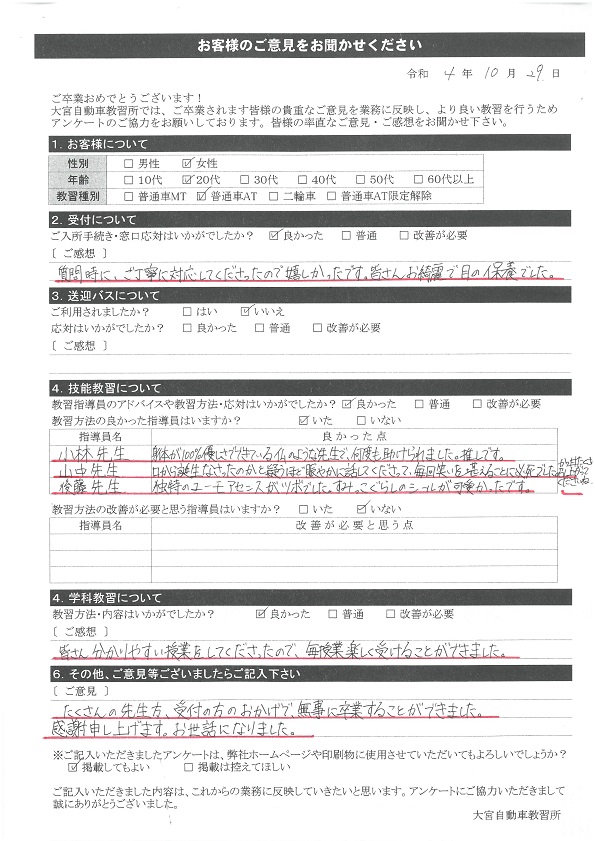 お客様のご意見をお聞かせください
令和 4 年 10 月 29 日
ご卒業おめでとうございます！
大宮自動車教習所では、ご卒業されます皆様の貴重なご意見を業務に反映し、より良い教習を行うため
アンケートのご協力をお願いしております。皆様の率直なご意見・ご感想をお聞かせ下さい。
1. お客様について
性別 □ 男性 ☑ 女性
年齢 □ 10代 ☑ 20代 □ 30代 □ 40代 □ 50代 □ 60代以上
教習種別 □ 普通車MT ☑ 普通車AT □ 二輪車 □ 普通車AT限定解除
2. 受付について
ご入所手続き・窓口応対はいかがでしたか？ ☑ 良かった □ 普通 □ 改善が必要
〔 ご感想 〕
質問時に、ご丁寧に対応してくださったので嬉しかったです。皆さんお綺麗で目の保養でした。
3. 送迎バスについて
ご利用されましたか？ □ はい ☑ いいえ
応対はいかがでしたか？ □ 良かった □ 普通 □ 改善が必要
〔 ご感想 〕
4. 技能教習について
教習指導員のアドバイスや教習方法・応対はいかがでしたか？ ☑ 良かった □ 普通 □ 改善が必要
教習方法の良かった指導員はいますか？ ☑ いた □ いない
指導員名 良かった点
小林先生 身体が100%優しさでできている仏のような先生で、何度も助けられました。推しです。
山中先生 口から誕生なさったのかと疑うほど賑やかに話してくださって、毎回笑いを堪えることに必死でした。
後藤先生 独特のユーモアセンスがツボでした。すみっこぐらしのシールが可愛かったです。
教習方法の改善が必要と思う指導員はいますか？ □ いた ☑ いない
指導員名 改善が必要と思う点
4. 学科教習について
教習方法・内容はいかがでしたか？ ☑ 良かった □ 普通 □ 改善が必要
〔 ご感想 〕
皆さん分かりやすい授業をしてくださったので、毎授業楽しく受けることができました。
6. その他、ご意見等ございましたらご記入下さい
〔 ご意見 〕
たくさんの先生方、受付の方のおかげで、無事に卒業することができました。
感謝申し上げます。お世話になりました。
※ご記入いただきましたアンケートは、弊社ホームページや印刷物に使用させていただいてもよろしいでしょうか？
☑ 掲載してもよい □ 掲載は控えてほしい
ご記入いただきました内容は、これからの業務に反映していきたいと思います。アンケートにご協力いただきまして
誠にありがとうございました。
大宮自動車教習所